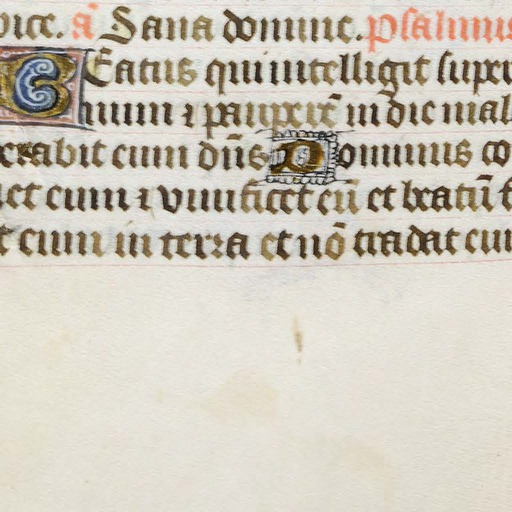 dice. añ Sana domine. Psalmus
Eatus qui intelligit super
num ⁊ pauperē in die mal
erabit eum dn̄s Dominus co
uet eum ⁊ viuificet eū et beatū f
t eum in terra et nō tradat eum